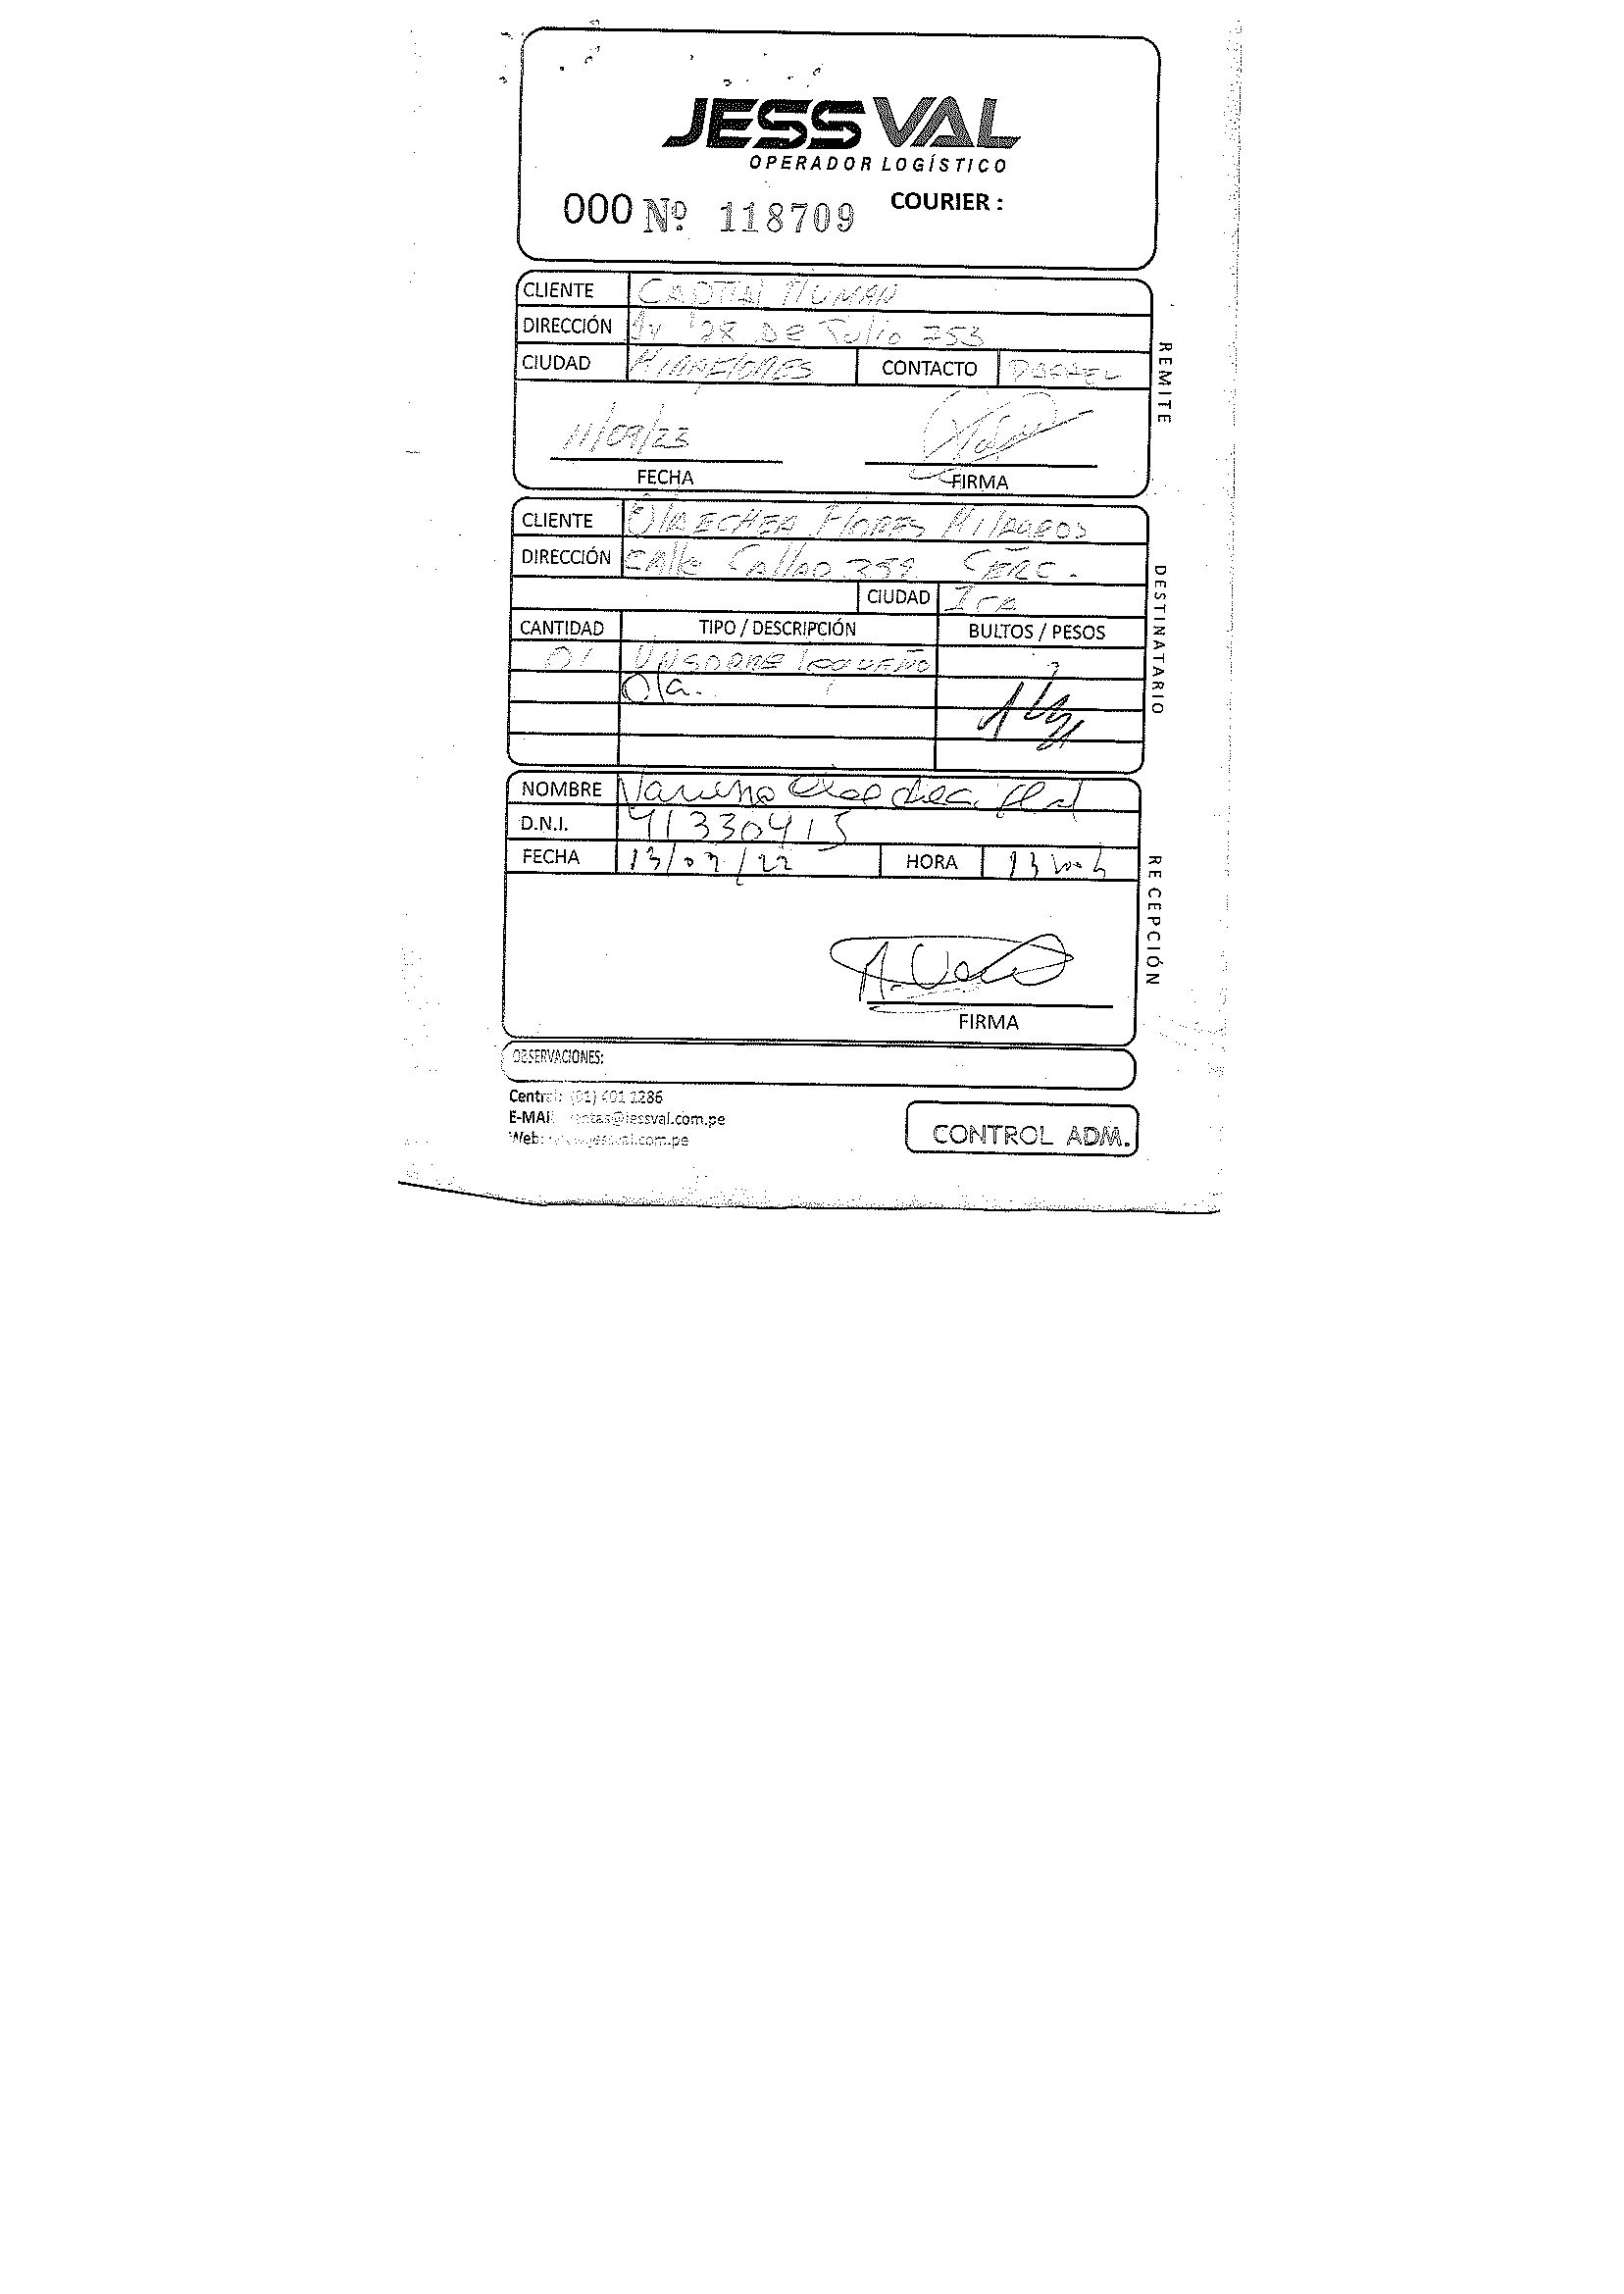 JESSVAL
OPERADOR LOGÍSTICO
000 Nº 118709 COURIER :
CLIENTE
DIRECCIÓN Av 28 De Julio 753
CIUDAD MIRAFLORES CONTACTO RAFAEL
11/09/23
FECHA FIRMA
REMITE
CLIENTE FLORES MILAGROS
DIRECCIÓN CAlle CAllAO CERC.
CIUDAD ICA
CANTIDAD TIPO / DESCRIPCIÓN BULTOS / PESOS
01 UN SOBRE PEQUEÑO
DESTINATARIO
NOMBRE
D.N.I. 41330415
FECHA HORA
FIRMA
RECEPCIÓN
OBSERVACIONES:
Central: (01) 401 1286
E-MAIL ventas@jessval.com.pe
Web: www.jessval.com.pe
CONTROL ADM.